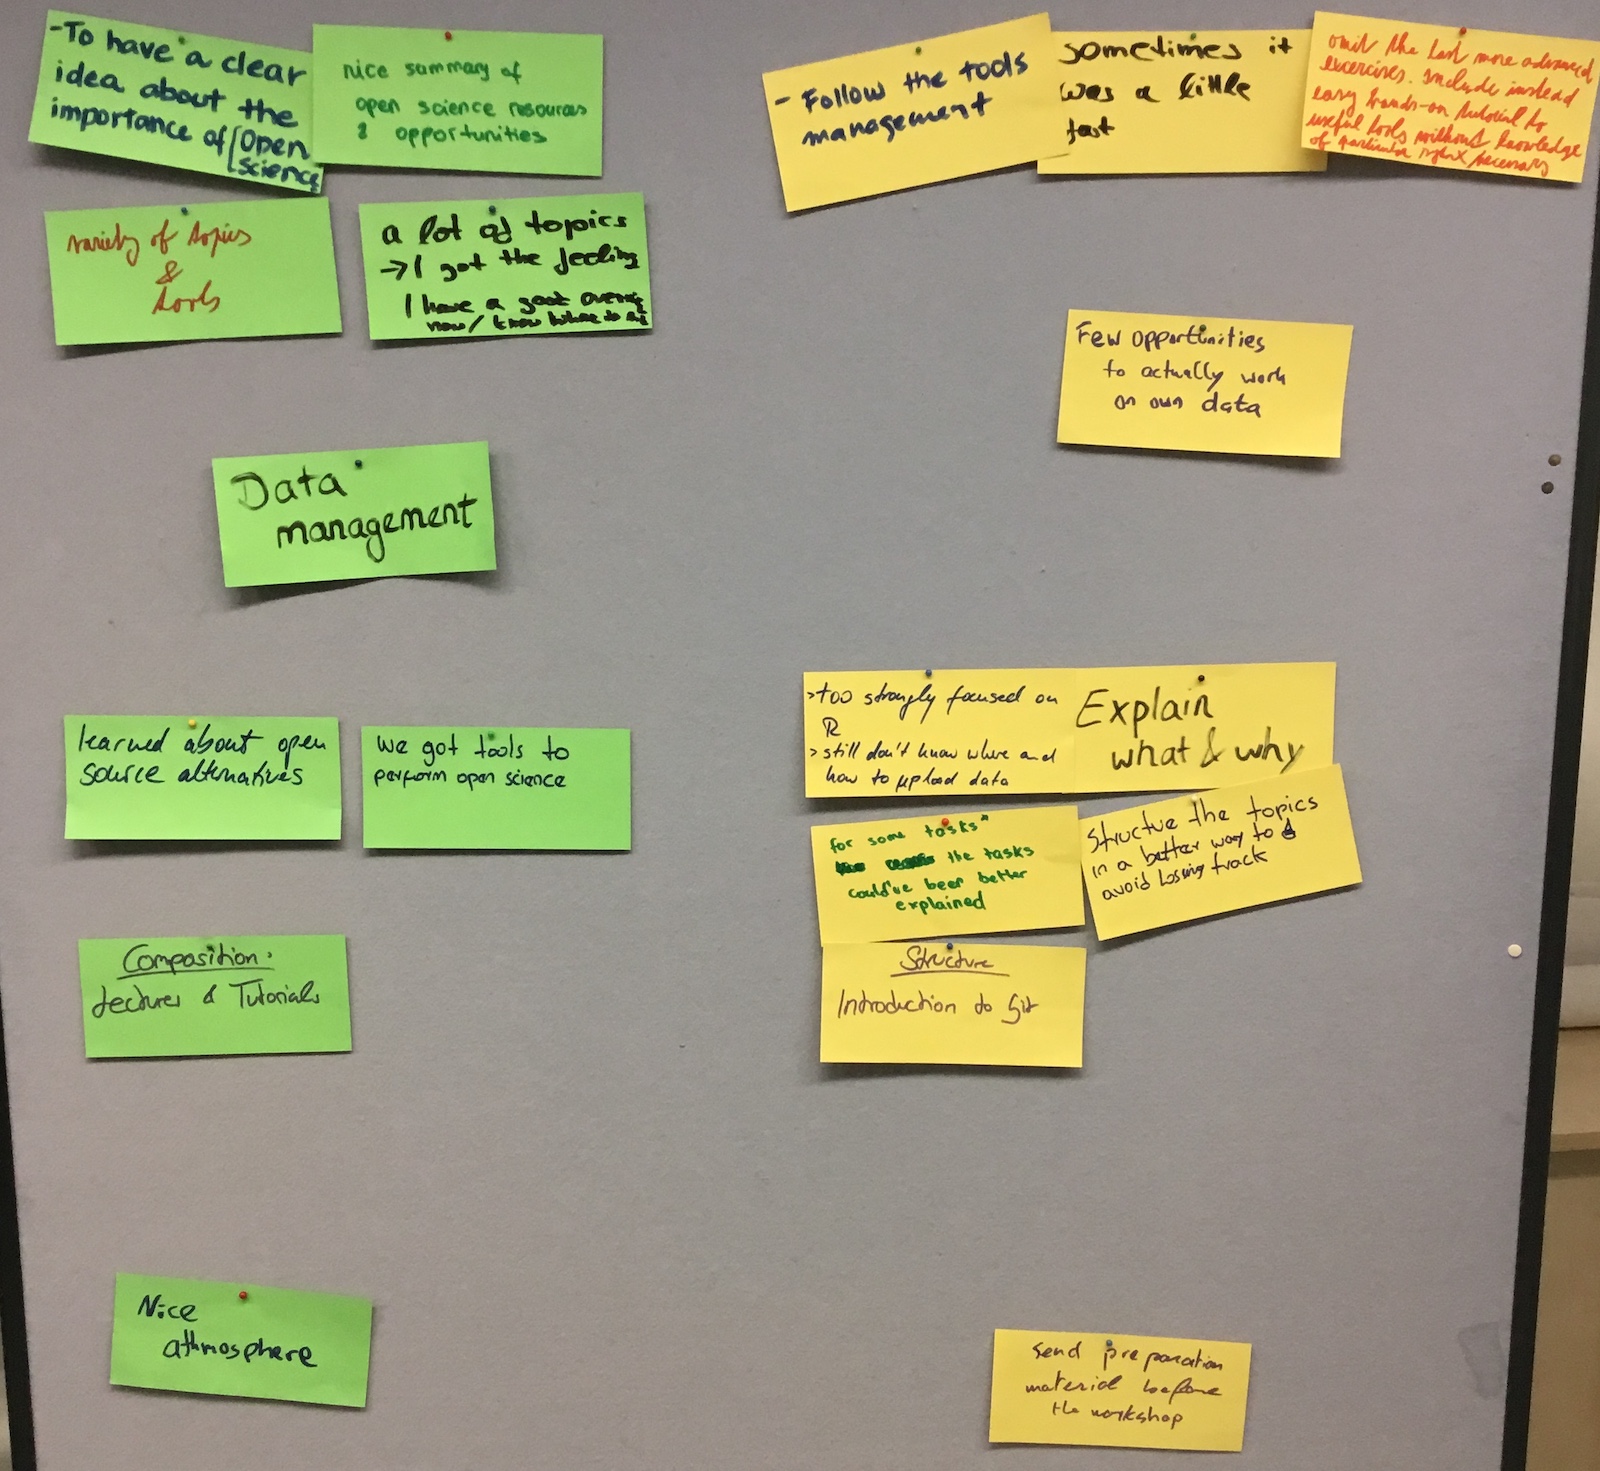 -To have a clear
idea about the
importance of [Open
science
nice summary of
open science resources
& opportunities
variety of topics
&
tools
a lot of topics
→ I got the feeling
I have a good
now / know where to
Data
management
learned about open
source alternatives
we got tools to
perform open science
Composition:
Lectures & Tutorials
Nice
athmosphere
- Follow the tools
management
sometimes it
was a little
fast
omit the last more advanced
excercises. Include instead
easy hands-on tutorial to
useful tools without knowledge
of particular necessary
Few opportunities
to actually work
on own data
>too strongly focused on
R
>still don't know where and
how to upload data
Explain
what & why
for some tasks"
the tasks
could've been better
explained
Structure the topics
in a better way to
avoid losing track
Structure
Introduction to Git
Send preparation
material before
the workshop